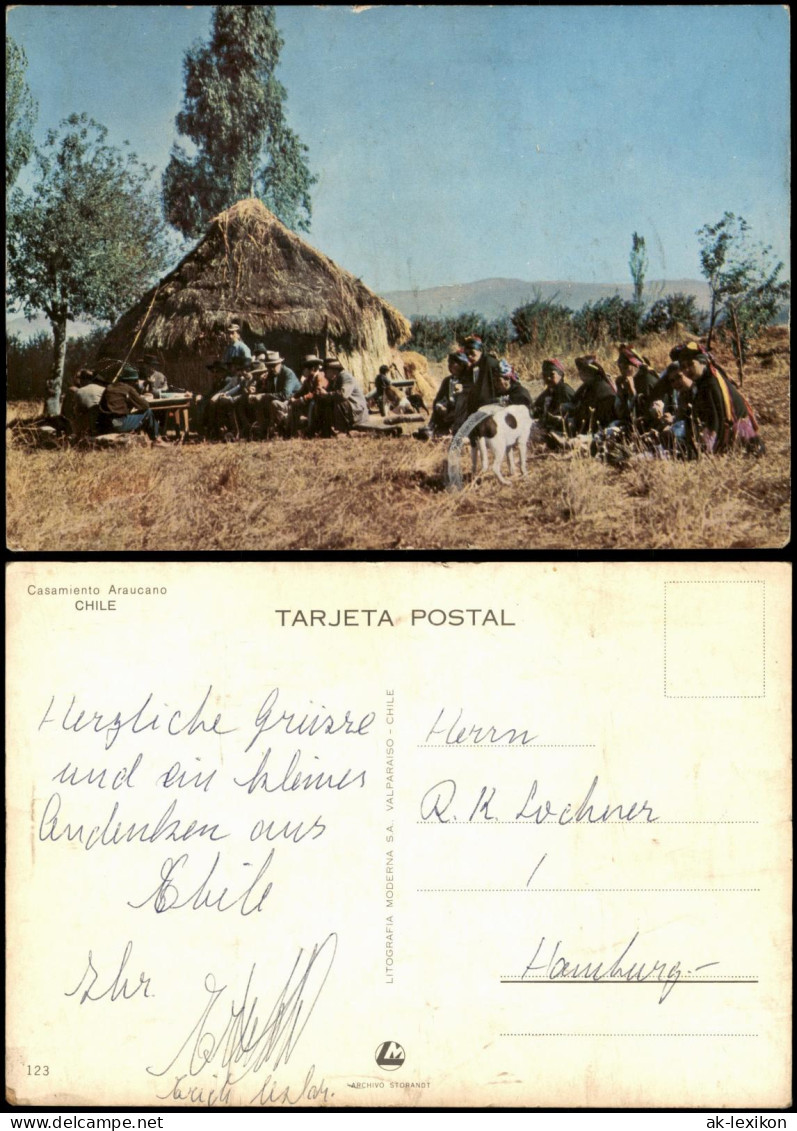 Casamiento Araucano
CHILE
TARJETA POSTAL
Herzliche Grüsse
und ein kleines
Andenken aus
Chile
Ihr
Erich
123
LITOGRAFIA MODERNA S.A. VALPARAISO - CHILE
Herrn
R. K. Locherer
Hamburg.-
LM
ARCHIVO STORANDT
www.delcampe.net
ak-lexikon